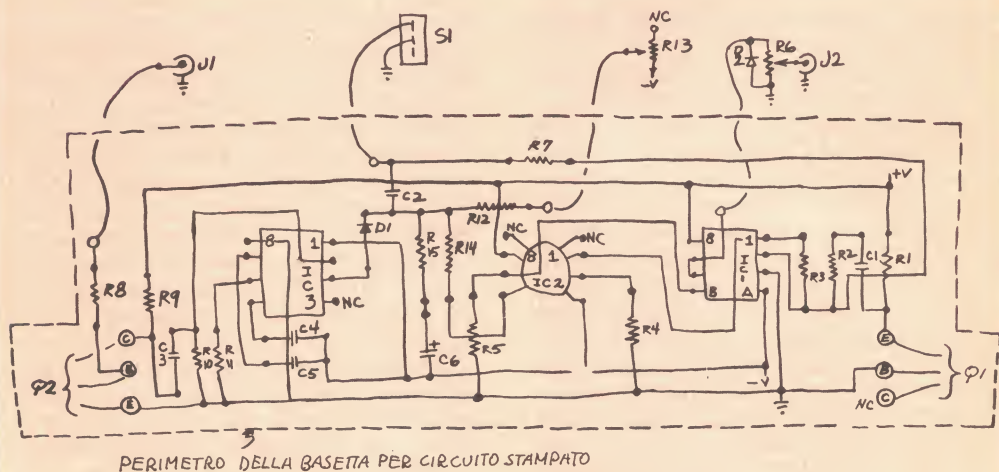 J1
S1
NC
R13
-V
D2
R6
J2
R7
C2
+V
R12
D1
R15
R14
NC
NC
8
1
IC3
NC
8
1
IC2
8
1
IC1
8
A
R3
R2
C1
R1
R8
R9
C3
R10
R11
C4
C5
C6
R5
R4
-V
Q2
C
B
E
E
B
NC C
Q1
PERIMETRO DELLA BASETTA PER CIRCUITO STAMPATO